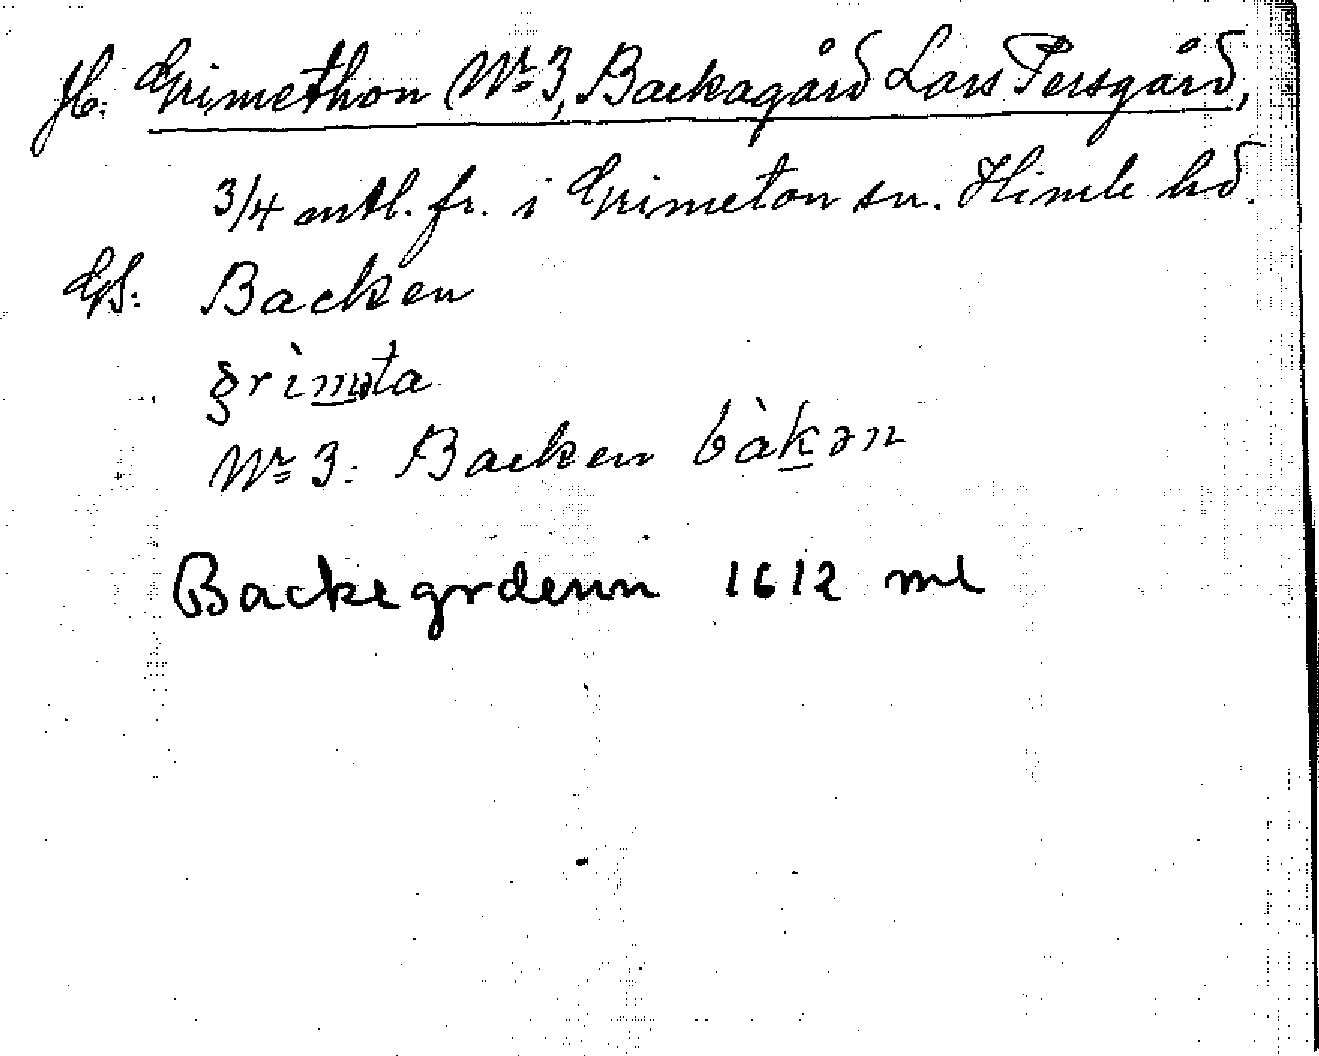 Jb: Grimethon Nr 3, Backagård Lars Persgård,
3/4 mtl. fr. i Grimeton sn. Himle hd.
GS: Backen
grìmta
Nr 3: Backen bàkən
Backegrdenn 1612 ml